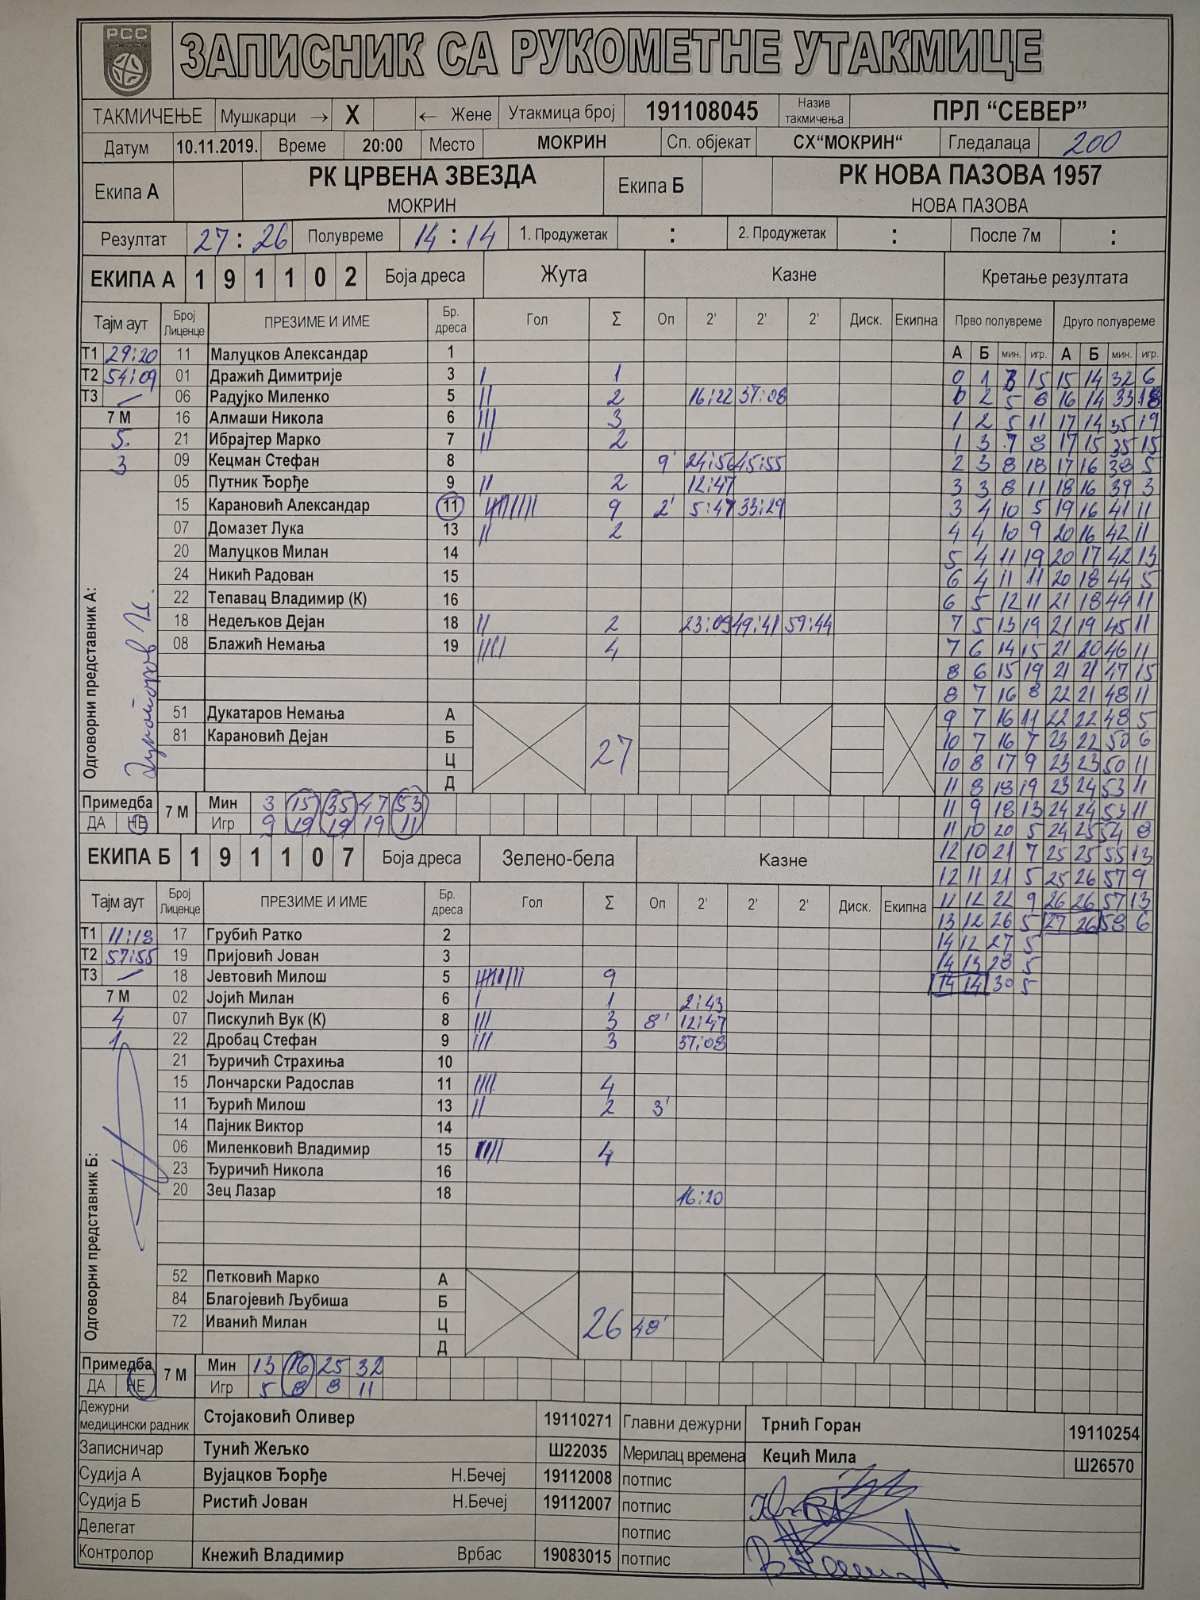 РСС
ЗАПИСНИК СА РУКОМЕТНЕ УТАКМИЦЕ
ТАКМИЧЕЊЕ Мушкарци → X ← Жене Утакмица број 191108045 Назив такмичења ПРЛ “СЕВЕР”
Датум 10.11.2019. Време 20:00 Место МОКРИН Сп. објекат СХ“МОКРИН“ Гледалаца 200
Екипа А РК ЦРВЕНА ЗВЕЗДА Екипа Б РК НОВА ПАЗОВА 1957
МОКРИН НОВА ПАЗОВА
Резултат 27 : 26 Полувреме 14 : 14 1. Продужетак : 2. Продужетак : После 7м :
ЕКИПА А 1 9 1 1 0 2 Боја дреса Жута Казне Кретање резултата
Тајм аут Број Лиценце ПРЕЗИМЕ И ИМЕ Бр. дреса Гол Σ Оп 2' 2' 2' Диск. Екипна Прво полувреме Друго полувреме
Т1 29:20 11 Малуцков Александар 1 А Б мин. игр. А Б мин. игр.
Т2 54:09 01 Дражић Димитрије 3 I 1 0 1 3 15 15 14 32 6
Т3 – 06 Радујко Миленко 5 II 2 16:22 37:08 0 2 5 8 16 14 33 18
7 М 16 Алмаши Никола 6 III 3 1 2 5 11 17 14 35 19
5. 21 Ибрајтер Марко 7 II 2 1 3 7 8 17 15 35 15
3 09 Кецман Стефан 8 9' 24:56 45:55 2 3 8 18 17 16 38 5
05 Путник Ђорђе 9 II 2 12:47 3 3 8 11 18 16 39 3
15 Карановић Александар 11 9 2' 5:47 33:29 3 4 10 5 19 16 41 11
07 Домазет Лука 13 II 2 4 4 10 9 20 16 42 11
20 Малуцков Милан 14 5 4 11 19 20 17 42 13
24 Никић Радован 15 6 4 11 11 20 18 44 5
22 Тепавац Владимир (К) 16 6 5 12 11 21 18 44 11
18 Недељков Дејан 18 II 2 23:09 49:41 59:44 7 5 13 19 21 19 45 11
08 Блажић Немања 19 IIII 4 7 6 14 15 21 20 46 11
8 6 15 19 21 21 47 15
8 7 16 8 22 21 48 11
51 Дукатаров Немања А 27 9 7 16 11 22 22 48 5
81 Карановић Дејан Б 10 7 16 7 23 22 50 6
Ц 10 8 17 9 23 23 50 11
Д 11 8 18 19 23 24 53 11
Одговорни представник А:
Примедба 7 М Мин 3 15 35 47 53 11 9 18 13 24 24 53 11
ДА НЕ Игр 9 19 19 19 11 11 10 20 5 24 25 54 8
ЕКИПА Б 1 9 1 1 0 7 Боја дреса Зелено-бела Казне 12 10 21 7 25 25 55 13
12 11 21 5 25 26 57 9
Тајм аут Број Лиценце ПРЕЗИМЕ И ИМЕ Бр. дреса Гол Σ Оп 2' 2' 2' Диск. Екипна 11 12 22 9 26 26 57 13
13 12 26 5 27 26 58 6
Т1 11:18 17 Грубић Ратко 2 14 12 27 5
Т2 57:55 19 Пријовић Јован 3 14 13 28 5
Т3 – 18 Јевтовић Милош 5 9 14 14 30 5
7 М 02 Јојић Милан 6 I 1 2:43
4 07 Пискулић Вук (К) 8 III 3 8' 12:47
1 22 Дробац Стефан 9 III 3 37:08
21 Ђуричић Страхиња 10
15 Лончарски Радослав 11 IIII 4
11 Ђурић Милош 13 II 2 3'
14 Пајник Виктор 14
06 Миленковић Владимир 15 IIII 4
23 Ђуричић Никола 16
20 Зец Лазар 18 16:20
52 Петковић Марко А
84 Благојевић Љубиша Б 26
72 Иванић Милан Ц 48'
Д
Одговорни представник Б:
Примедба 7 М Мин 13 16 25 32
ДА НЕ Игр 5 8 8 11
Дежурни медицински радник Стојаковић Оливер 19110271 Главни дежурни Трнић Горан 19110254
Записничар Тунић Жељко Ш22035 Мерилац времена Кецић Мила Ш26570
Судија А Вујацков Ђорђе Н.Бечеј 19112008 потпис
Судија Б Ристић Јован Н.Бечеј 19112007 потпис
Делегат потпис
Контролор Кнежић Владимир Врбас 19083015 потпис